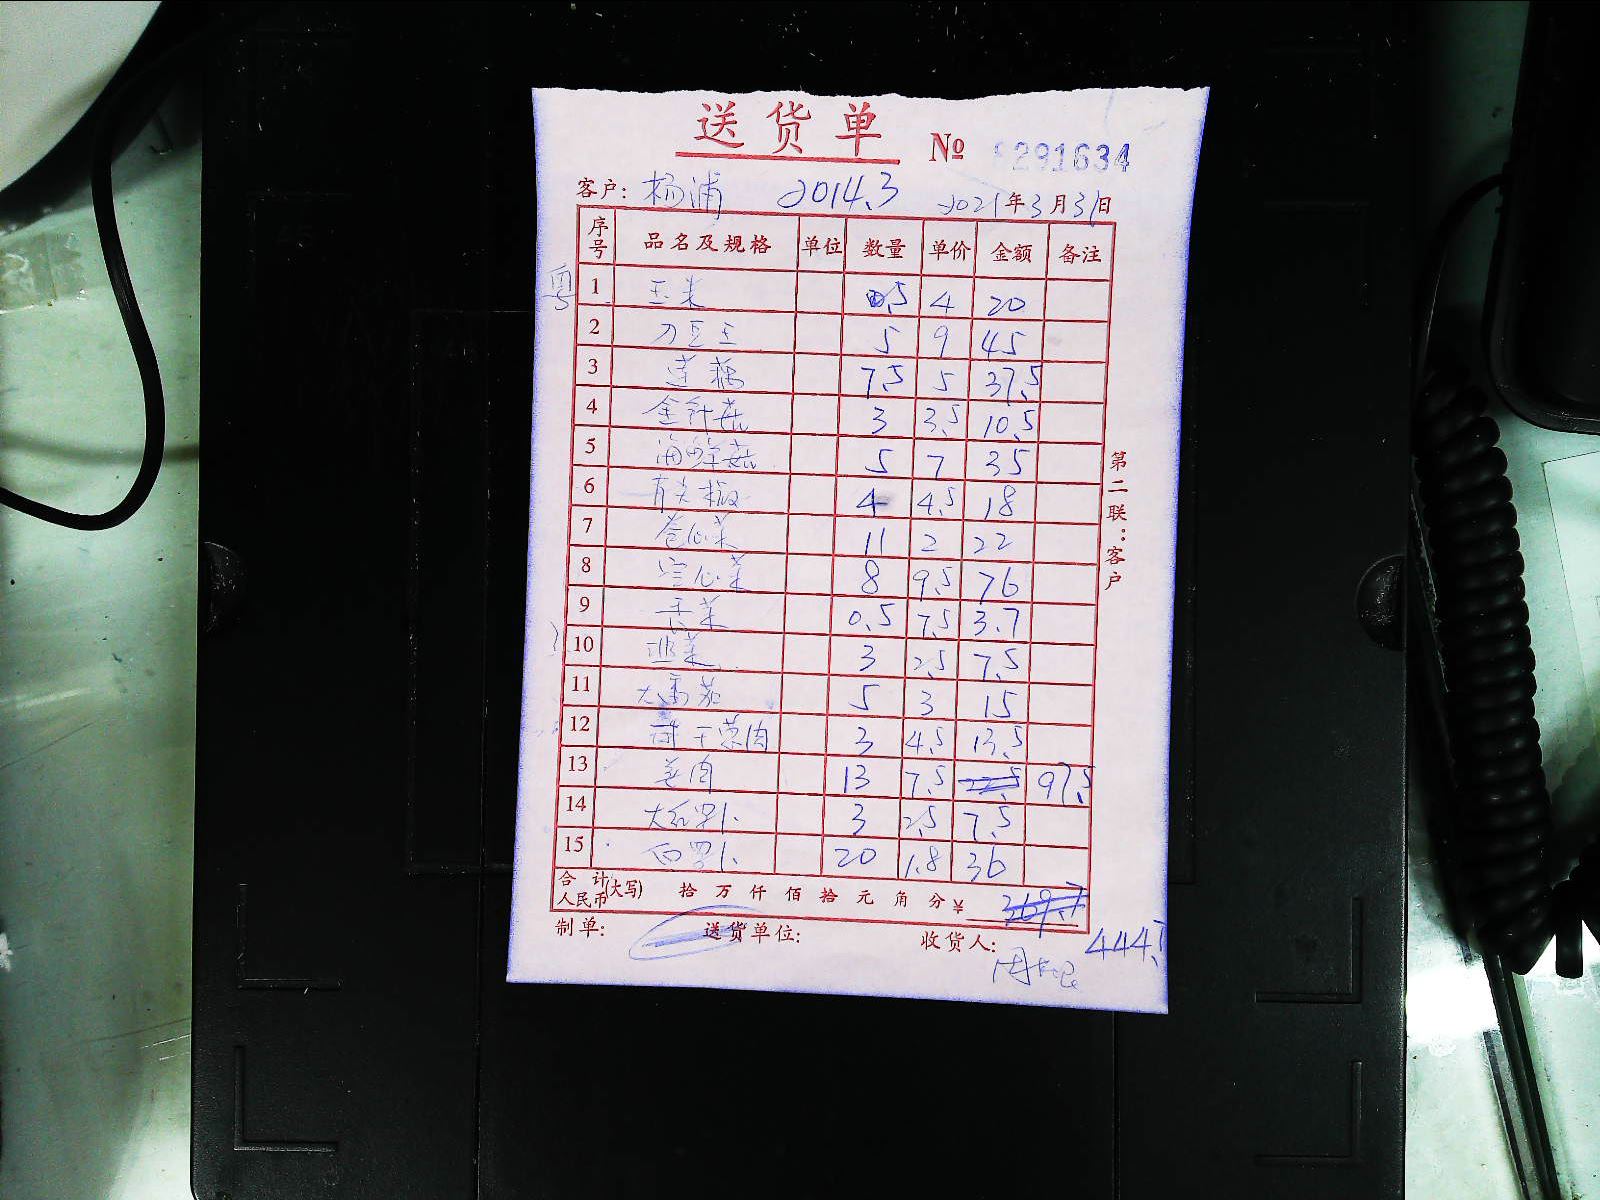 送货单
№ 291634
客户: 杨浦 2014.3 2021年3月31日
序号 品名及规格 单位 数量 单价 金额 备注
粤
1 玉米 5 4 20
2 刀豆王 5 9 45
3 莲藕 7.5 5 37.5
4 金针菇 3 3.5 10.5
5 海鲜菇 5 7 35
6 青尖椒 4 4.5 18
7 卷心菜 11 2 22
8 空心菜 8 9.5 76
9 香菜 0.5 7.5 3.7
10 韭菜 3 2.5 7.5
11 大番茄 5 3 15
12 3 4.5 13.5
13 姜肉 13 7.5 97.5
14 大红罗卜 3 2.5 7.5
15 白罗卜 20 1.8 36
合计人民币(大写) 拾 万 仟 佰 拾 元 角 分 ¥ 369.7
制单: 送货单位: 收货人: 444.7
第二联:客户